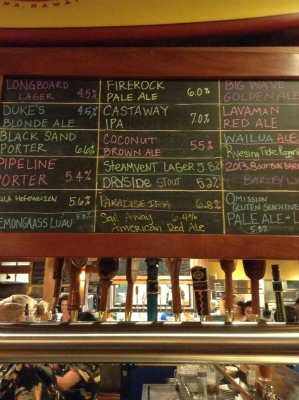 LONGBOARD
LAGER 4.5%
DUKE'S 4.5%
BLONDE ALE
BLACK SAND
PORTER 6.6%
PIPELINE
PORTER 5.4%
HEFEWEIZEN 5.6%
LEMONGRASS LUAU 5.8%
FIREROCK
PALE ALE 6.0%
CASTAWAY
IPA 7.0%
COCONUT
BROWN ALE 5.5%
STEAMVENT LAGER 5.8%
DRYSIDE STOUT 5.2%
PARADISE IPA 6.8%
Sail Away 6.4%
American Red Ale
BIG WAVE
GOLDEN ALE
LAVAMAN
RED ALE
WAILUA ALE
2013 BOURBON BARREL
OMISSION
GLUTEN SENSITIVE
PALE ALE +
5.8%